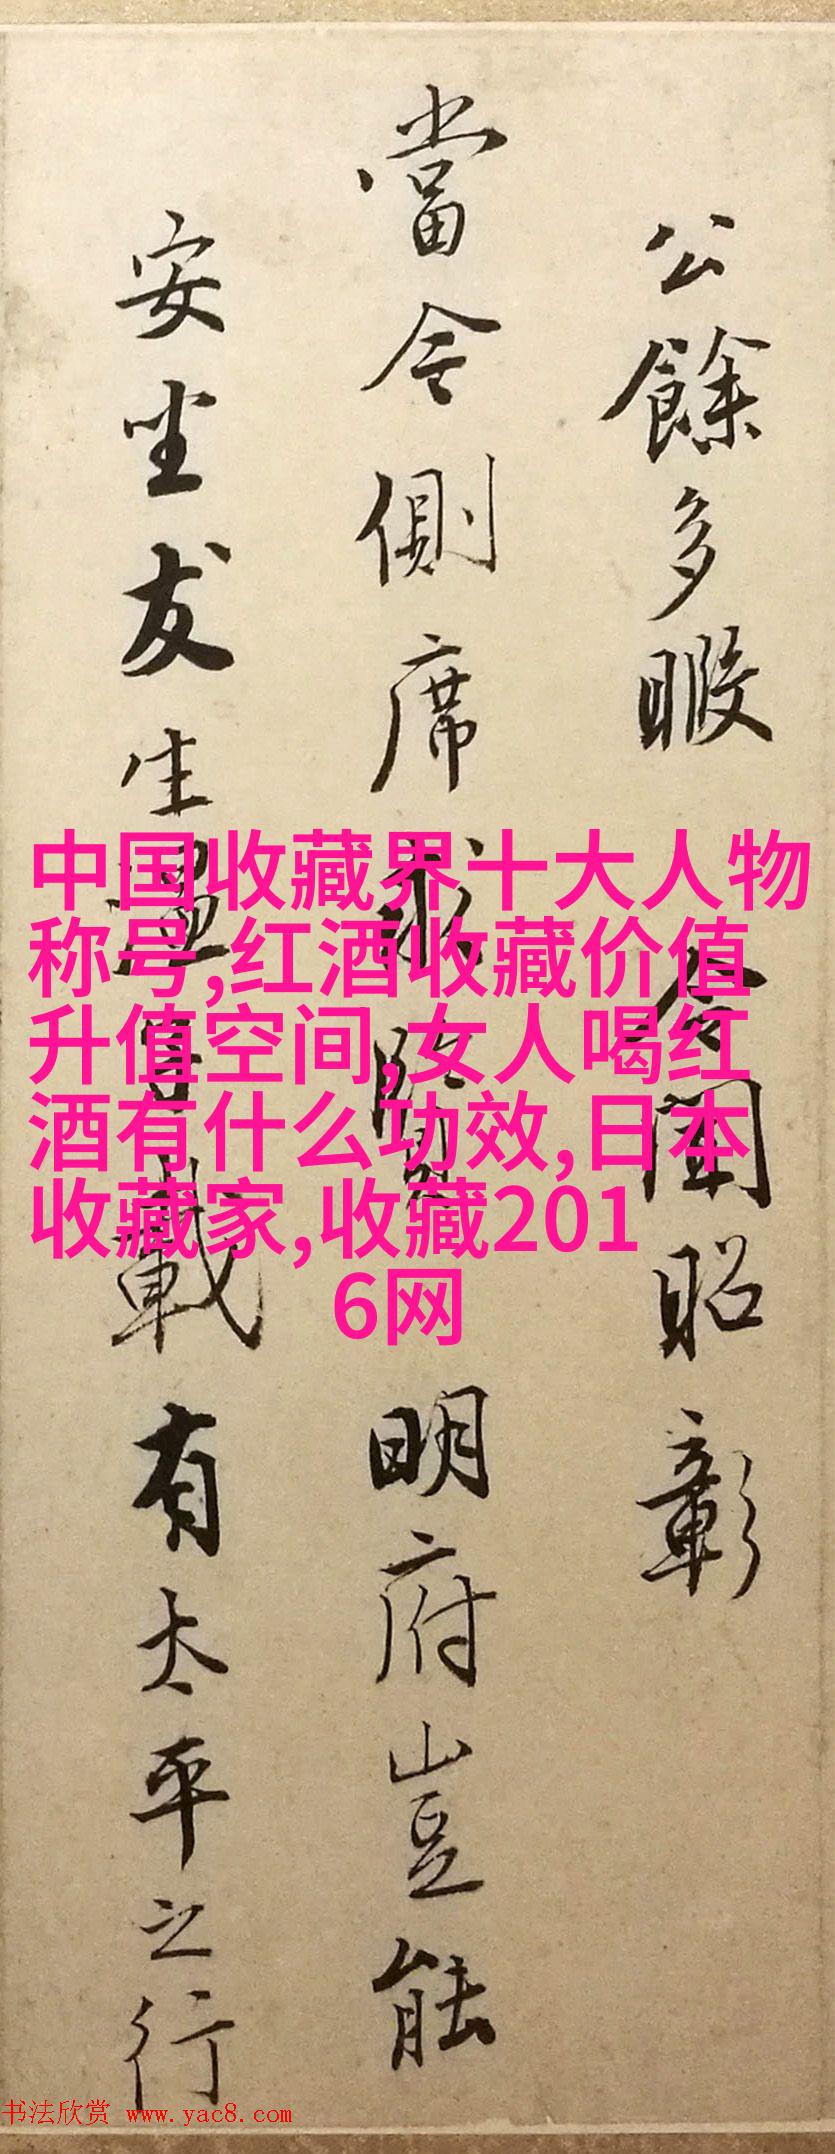 公餘多暇 令聞昭彰
當今側席求賢 明府豈能
安坐友生 尊載有太平之行
中国收藏界十大人物
称号,红酒收藏价值
升值空间,女人喝红
酒有什么功效,日本
收藏家,收藏201
6网
书法欣赏 www.yac8.com